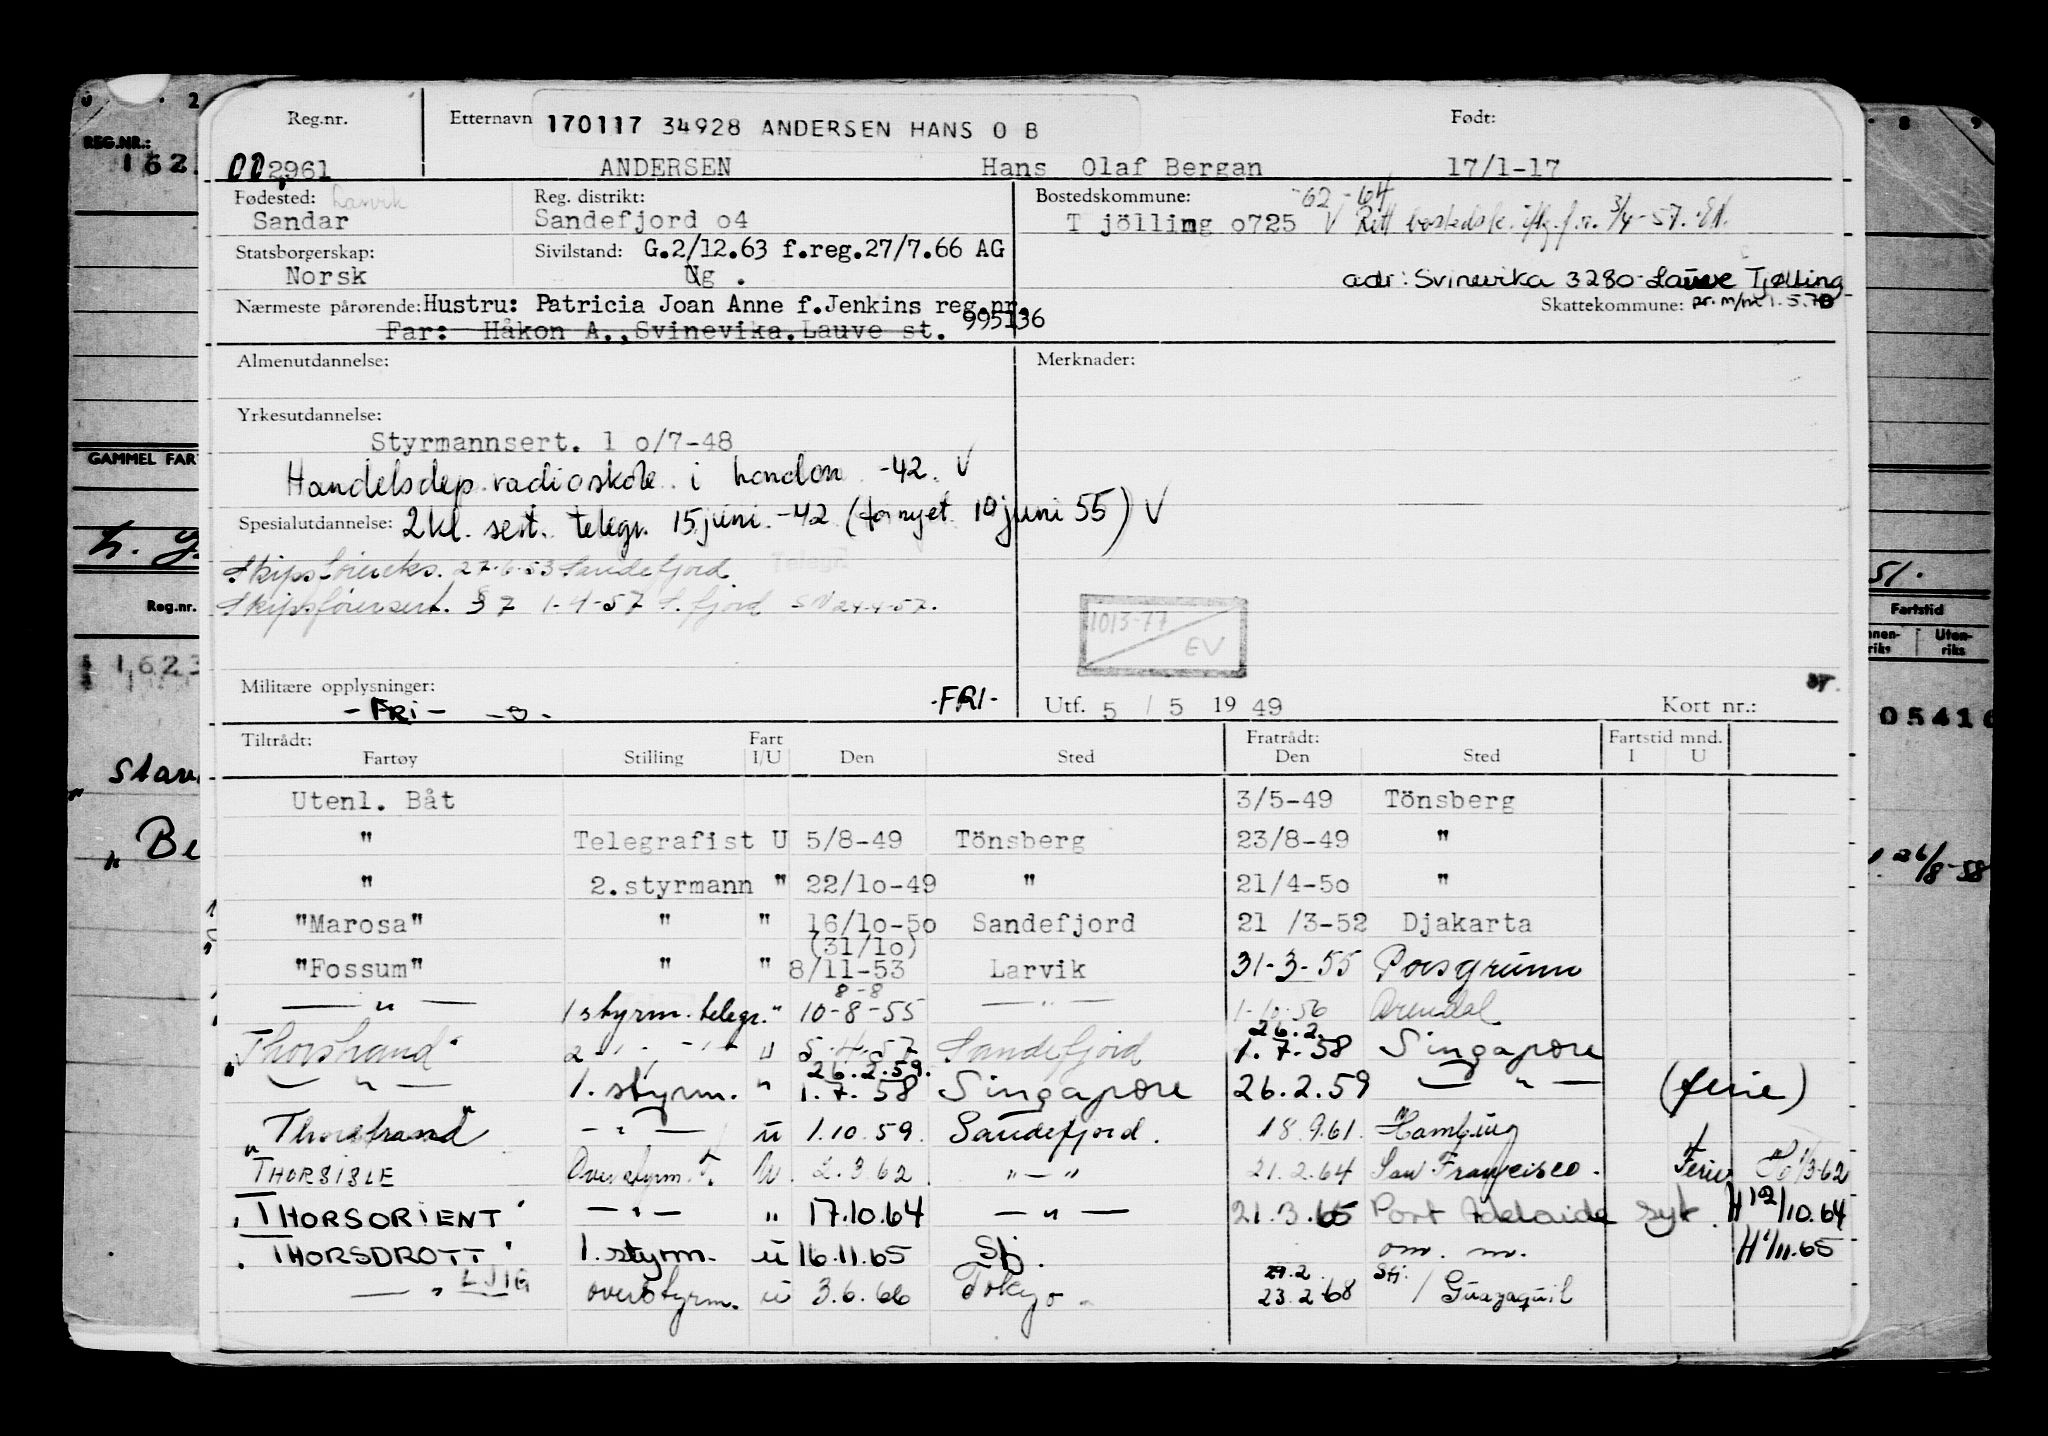 Reg.nr. Etternavn 170117 34928 ANDERSEN HANS O B Født:
002961 ANDERSEN Hans Olaf Bergan 17/1-17
Fødested: Larvik Reg. distrikt: Bostedskommune: -62-64
Sandar Sandefjord o4 Tjölling o725 V Rett bostedsk. iflg. f.r. 3/4-57. EN.
Statsborgerskap: Sivilstand: G.2/12.63 f.reg.27/7.66 AG
Norsk Ug.
adr: Svinevika 3280 Lauve Tjølling
Nærmeste pårørende: Hustru: Patricia Joan Anne f.Jenkins reg.nr. 995136
Skattekommune: pr. m/nr 1.5.70
Far: Håkon A., Svinevika. Lauve st.
Almenutdannelse: Merknader:
Yrkesutdannelse:
Styrmannsert. 1 o/7-48
Handelsdep. radioskole i London -42. V
Spesialutdannelse: 2 kl. sert. telegr. 15 juni -42 (fornyet 10 juni 55) V
Skipsføiereks. 27.6.53 Sandefjord Telegr
Skipsførersert. § 7 1-4-57 S.fjord SN 24-4-57.
1013-77
EV
Militære opplysninger:
-FRI- -FRI- Utf. 5 / 5 1949 Kort nr.:
Tiltrådt: Fart Fratrådt: Fartstid mnd.
Fartøy Stilling I/U Den Sted Den Sted I U
Utenl. Båt 3/5-49 Tönsberg
" Telegrafist U 5/8-49 Tönsberg 23/8-49 "
" 2.styrmann " 22/1o-49 " 21/4-5o "
"Marosa" " " 16/1o-5o Sandefjord 21 /3-52 Djakarta
(31/1o)
"Fossum" " " 8/11-53 Larvik 31-3-55 Porsgrunn
8-8
— " — 1 styrm. telegr. " 10-8-55 — " — 1-10-56 Arendal
26.2.
"Thorstrand" 2 - " - " - " 5.4.57 Sandefjord 1.7.58 Singapore
26.2.59.
— " — 1. styrm. " 1.7.58 Singapore 26.2.59 — " — (ferie)
"Thorstrand" — " — u 1.10.59. Sandefjord. 18.9.61. Hamburg
"THORSISLE Overstyrm. T. U. 2.3.62 " — " 21.2.64 San Francisco. Ferie 1/3-62
"THORSORIENT" — " — " 17.10.64 — " — 21.3.65 Port Adelaide syk. H 12/10.64
"THORSDROTT" 1. styrm. u 16.11.65 Sfj. om. m. H 1/11.65
29.2. Sfj.
— " — LJIG overstyrm. u 3.6.66 Tokyo 23.2.68 / Guayaquil
REG.NR.:
162
GAMMEL FAR
Reg.nr.
1623
Stav
Be
8 9
51.
Fartstid
Uten-
riks
05416
26/8-58